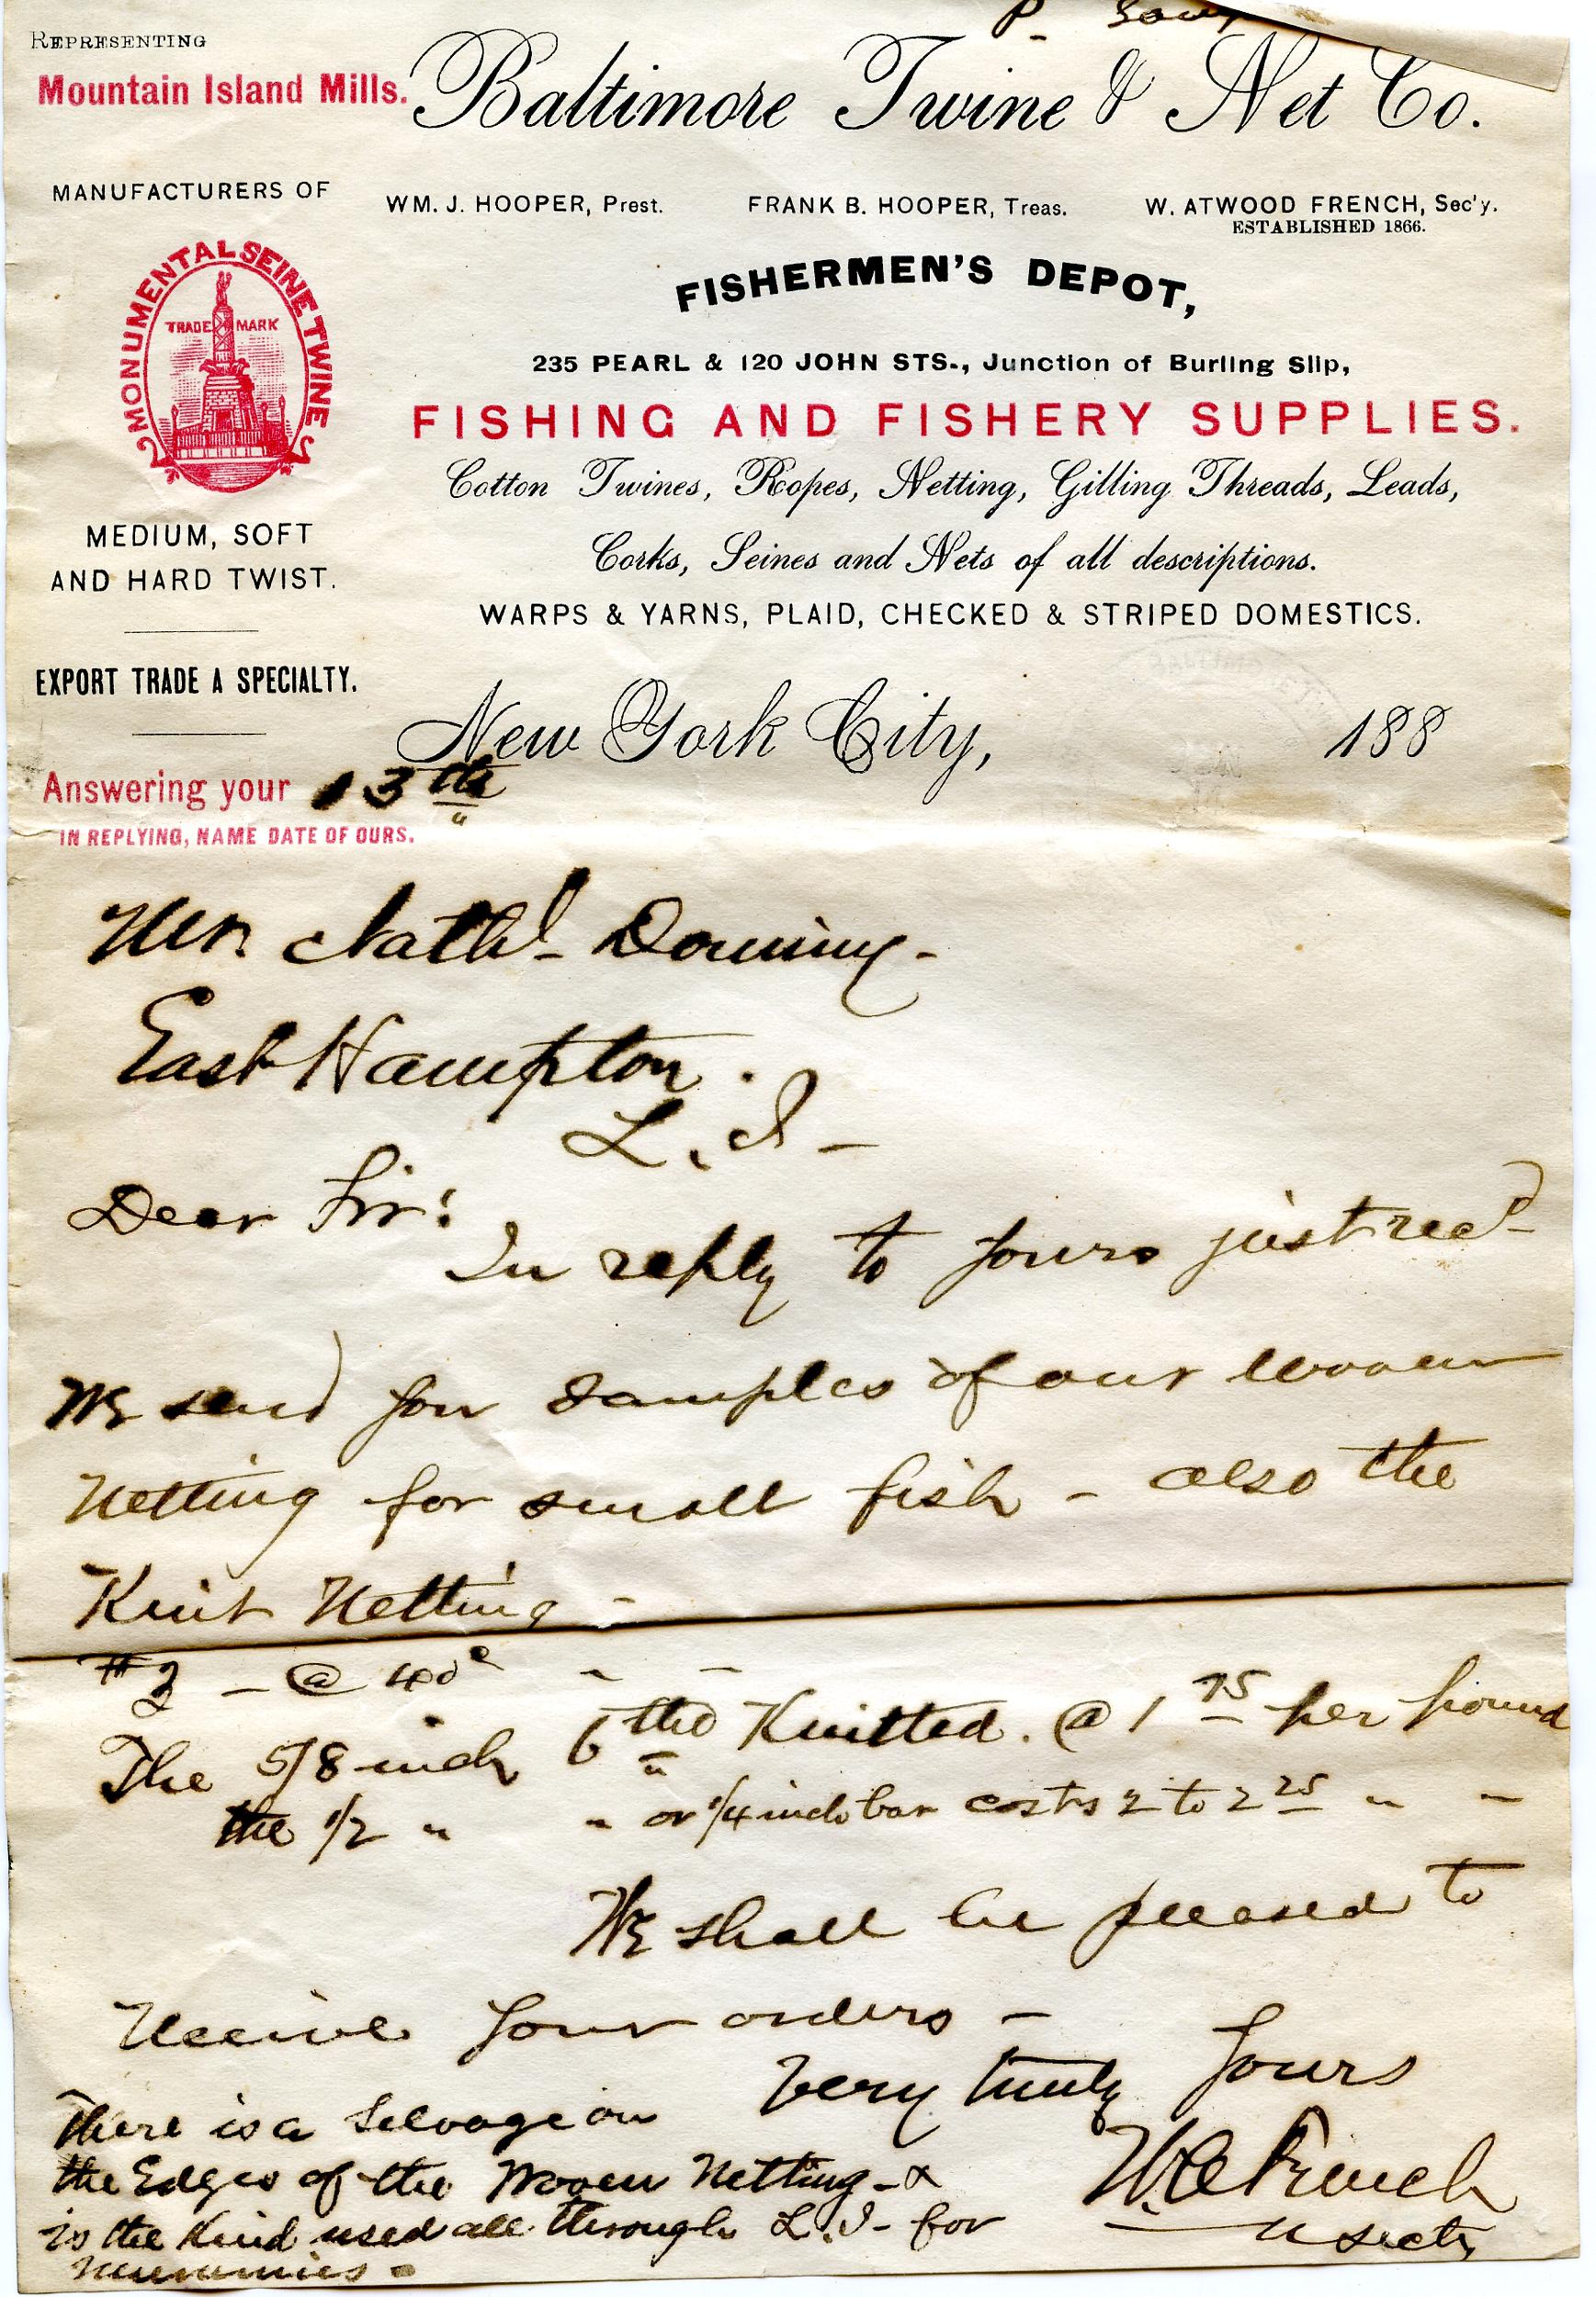 REPRESENTING
Mountain Island Mills.
Baltimore Twine & Net Co.
MANUFACTURERS OF
WM. J. HOOPER, Prest. FRANK B. HOOPER, Treas. W. ATWOOD FRENCH, Sec'y.
ESTABLISHED 1866.
MONUMENTAL SEINE TWINE
TRADE MARK
FISHERMEN'S DEPOT,
235 PEARL & 120 JOHN STS., Junction of Burling Slip,
FISHING AND FISHERY SUPPLIES.
Cotton Twines, Ropes, Netting, Gilling Threads, Leads,
Corks, Seines and Nets of all descriptions.
MEDIUM, SOFT
AND HARD TWIST.
WARPS & YARNS, PLAID, CHECKED & STRIPED DOMESTICS.
EXPORT TRADE A SPECIALTY.
New York City, 188
Answering your 13th
IN REPLYING, NAME DATE OF OURS.
Mr. Nathl- Dominy-
East Hampton.
L.I-
Dear Sir!
In reply to yours just recd-
We send you samples of our woven
Netting for small fish - also the
Knit Netting -
#2 - @ 40c - -
The 5/8 inch the Knitted. @ 1 75 per pound
the 1/2 " " or 1/4 inch bar costs 2 to 2 25 " "
We shall be pleased to
Receive your orders -
Very truly yours
There is a Selvage on
the Edges of the Woven Netting - &
is the Kind used all through L.I- for
French
secty